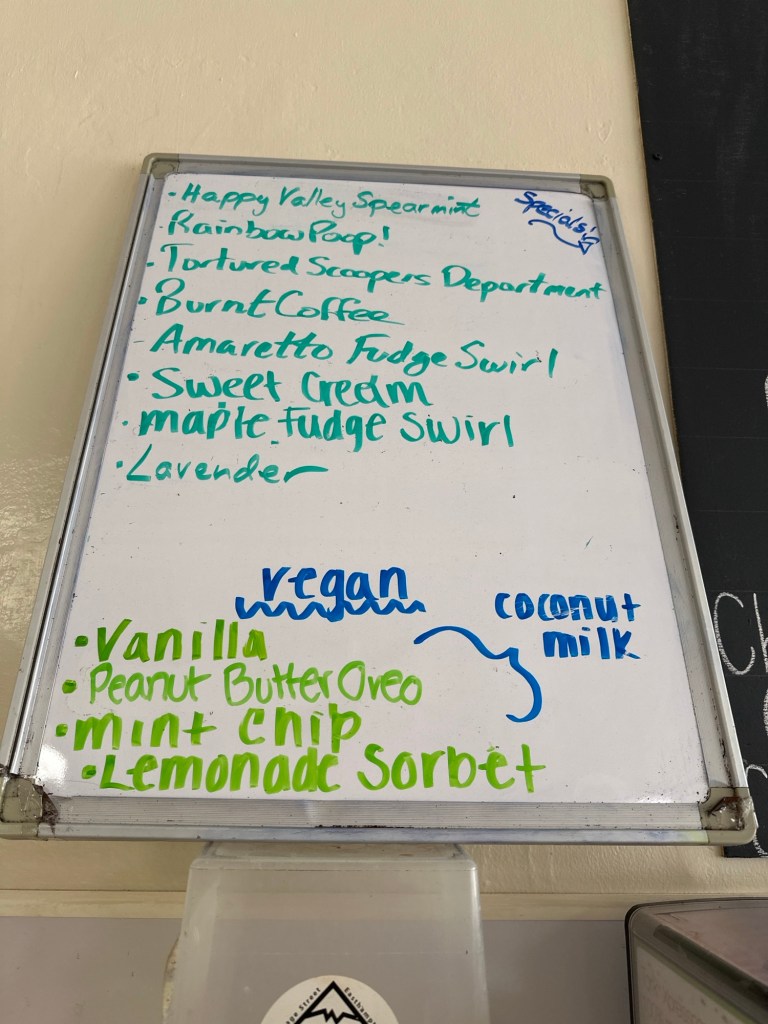 Specials!
• Happy Valley Spearmint
Rainbow Poop!
• Tortured Scoopers Department
• Burnt Coffee
- Amaretto Fudge Swirl
• Sweet Cream
• maple fudge swirl
• Lavender
vegan
coconut
milk
• Vanilla
• Peanut Butter Oreo
• mint chip
• Lemonade Sorbet
Street